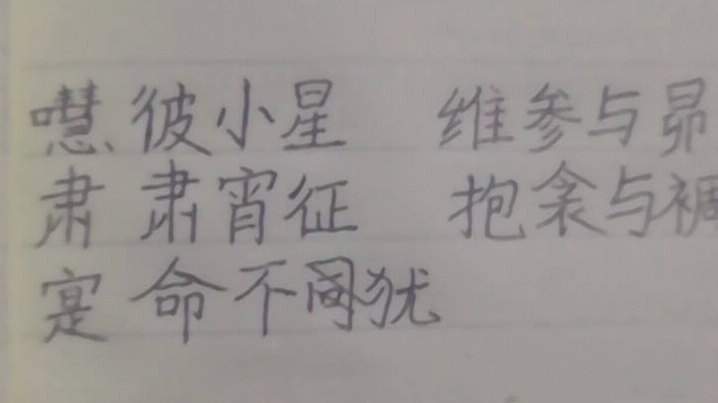 嘒彼小星 维参与昴
肃肃宵征 抱衾与裯
寔命不同犹